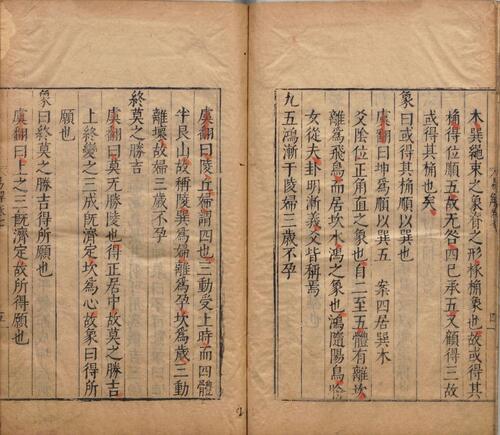 木巽繩束之象脊之形椽桷象也故或得其
桷得位順五故无咎四巳承五又顧得三故
或得其桷也矣
象曰或得其桷順以巽也
虞翻曰坤爲順以巽五　案四居巽木
爻陰位正角直之象也自二至五體有離坎
離爲飛鳥而居坎水鴻之象也鴻隨陽鳥喻
女從夫卦明漸義爻皆稱焉
九五鴻漸于陵婦三歲不孕
虞翻曰陵丘婦謂四也三動受上時而四體
半艮山故稱陵巽爲婦離爲孕坎爲歲三動
離壞故婦三歲不孕
終莫之勝吉
虞翻曰莫无勝陵也得正居中故莫之勝吉
上終變之三成旣濟定坎爲心故象曰得所
願也
象曰終莫之勝吉得所願也
虞翻曰上之三旣濟定故所得願也